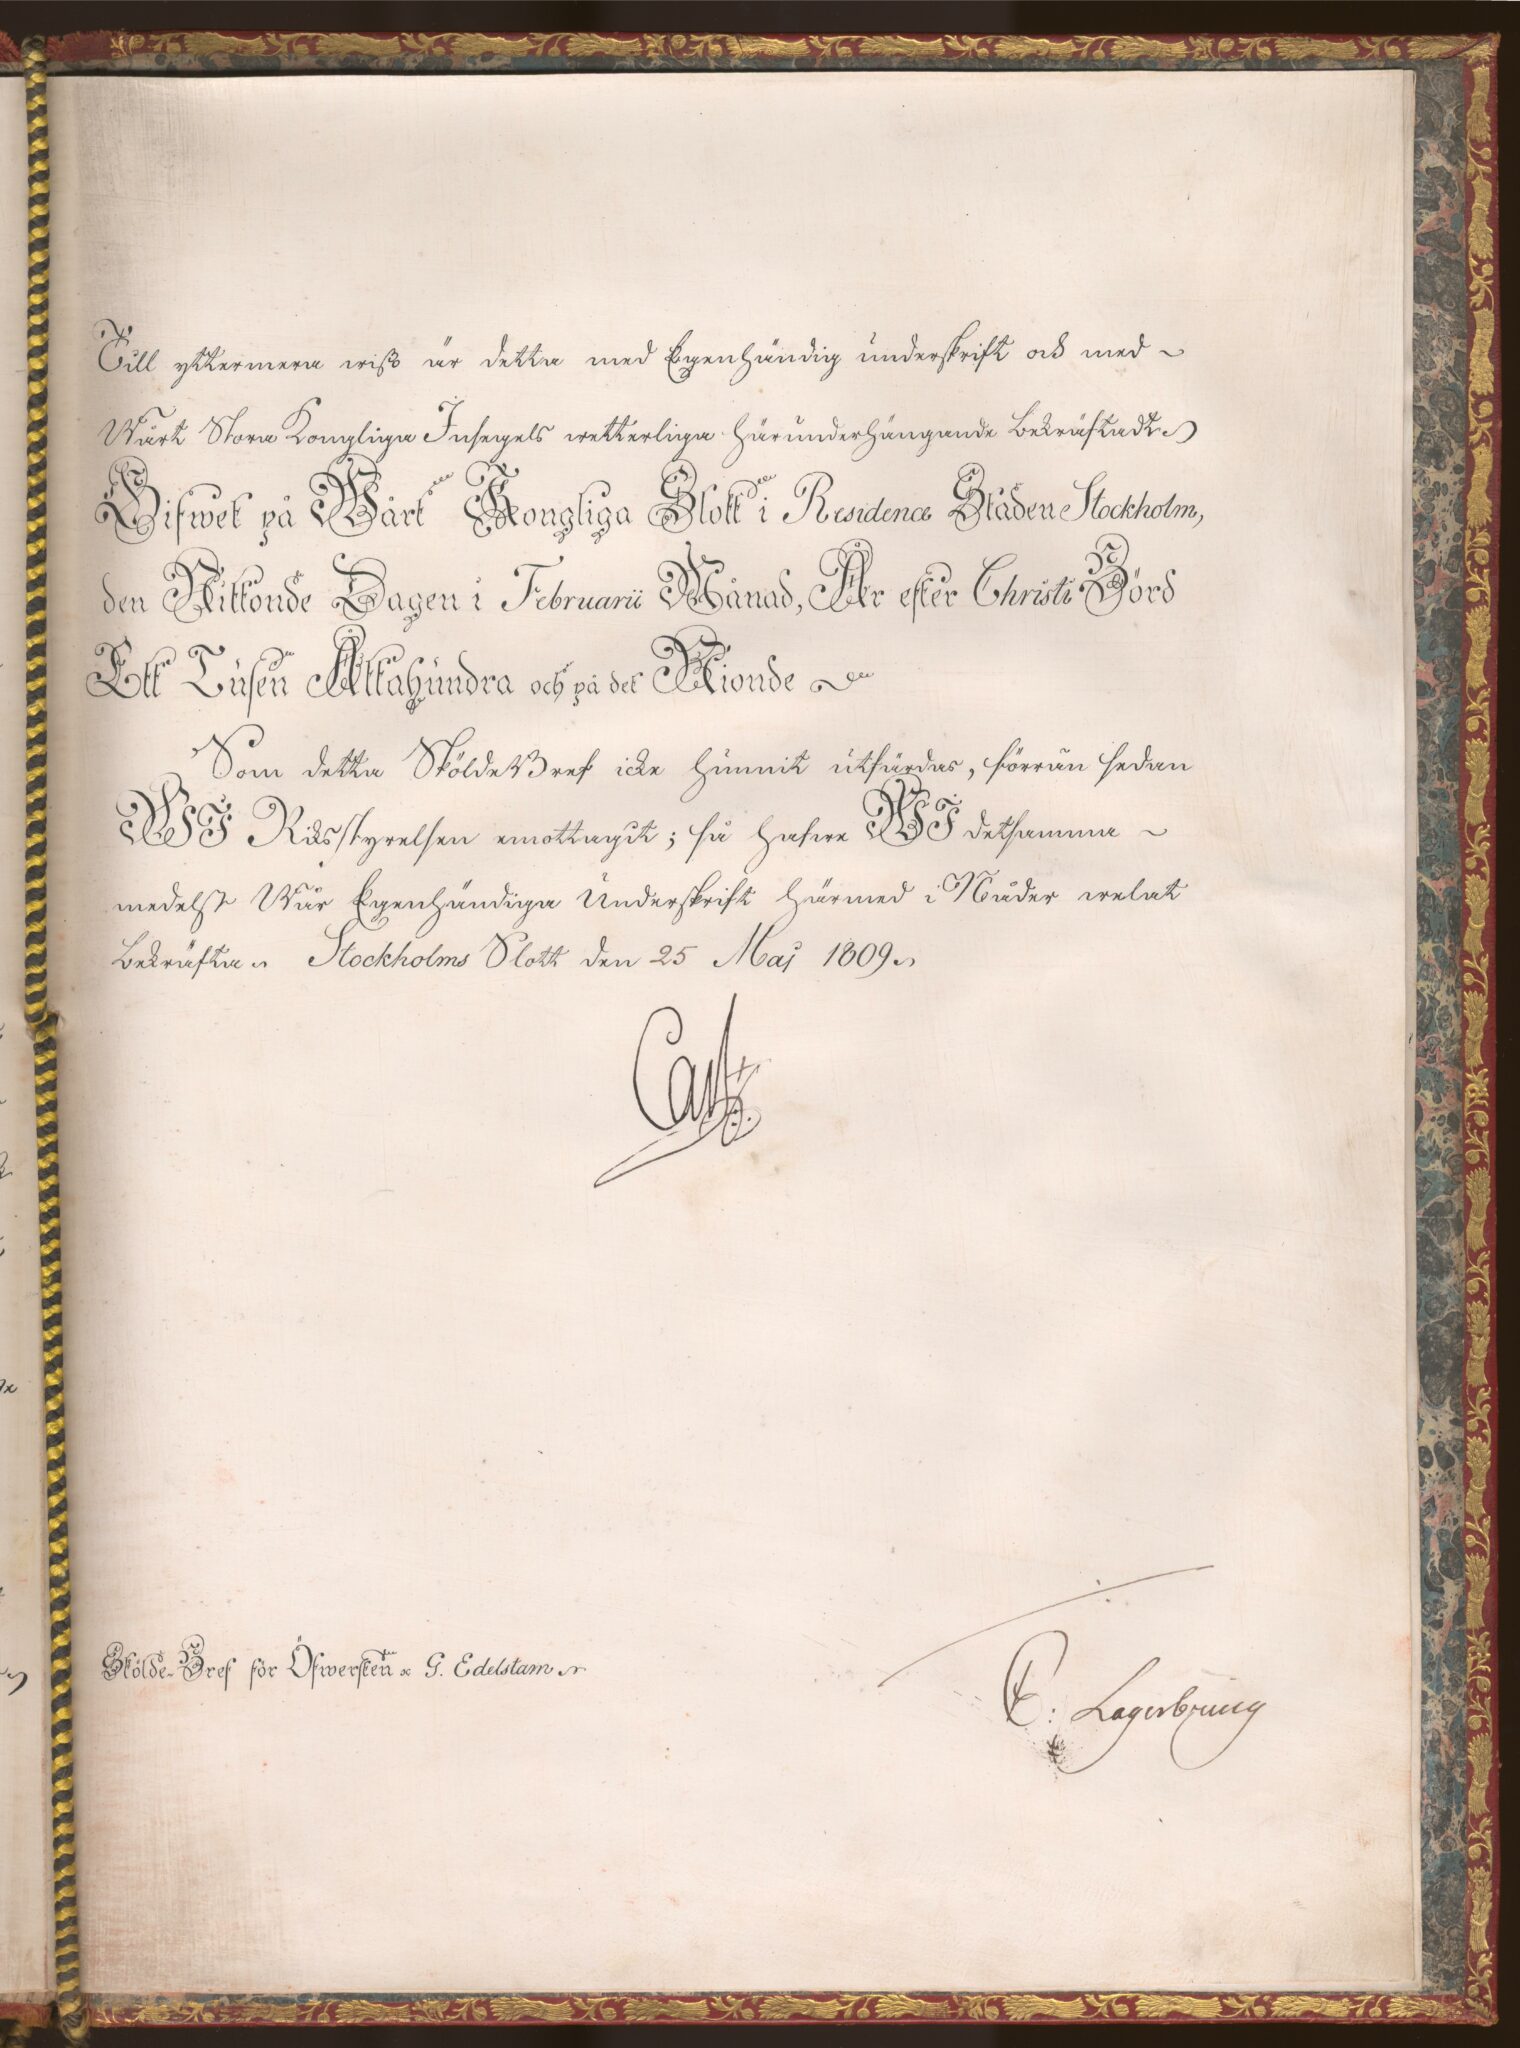 Till yttermera wisso är detta med Egenhändig underskrift ock med
Wårt Stora Kongliga Insegels wetterliga härunderhängande Bekräftadt
Gifwet på Wårt Kongliga Slott i Residence Staden Stockholm,
den Nittonde Dagen i Februarii Månad, År efter Christi Börd
Ett Tusen Åttahundra och på det Nionde
Som detta SköldeBref icke hunnit utfärdas, förrän sedan
WI Riksstyrelsen emottagit; så hafwe WI detsamma
medelst Wår Egenhändiga Underskrift härmed i Nåder welat
Bekräfta. Stockholms Slott den 25 Maj 1809.
Carl
Skölde-Bref för Öfwersten G. Edelstam
C: Lagerbring